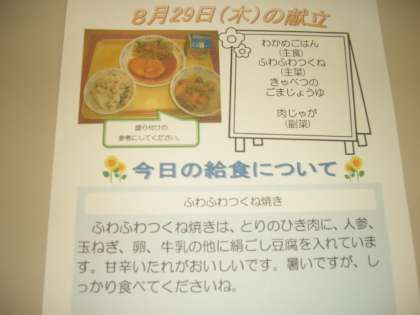 8月29日(木)の献立
わかめごはん
(主食)
ふわふわつくね
(主菜)
きゃべつの
ごまじょうゆ
肉じゃが
(副菜)
盛り付けの
参考にしてください。
今日の給食について
ふわふわつくね焼き
ふわふわつくね焼きは、とりのひき肉に、人参、
玉ねぎ、卵、牛乳の他に絹ごし豆腐を入れていま
す。甘辛いたれがおいしいです。暑いですが、し
っかり食べてくださいね。